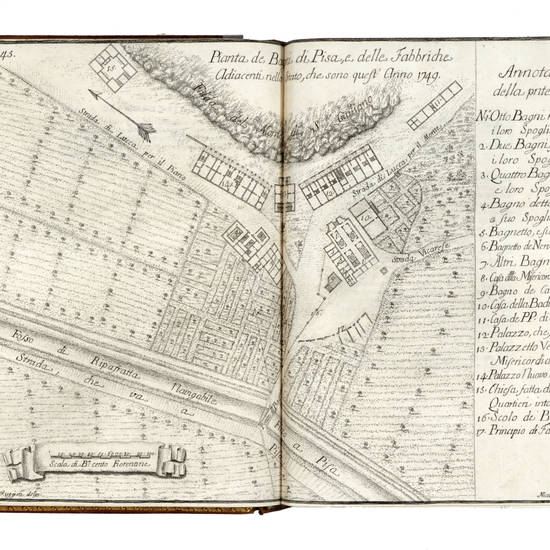 45.
Pianta de Bagni di Pisa, e delle Fabbriche
Adiacenti nello Stato, che sono quest' Anno 1749.
Falda del Monte di S. Giuliano
Strada di Lucca per il Piano
Strada di Lucca per il Monte
Strada Vicarese
Fosso di Ripafratta Navigabile
Strada che va a Pisa
Scala di Bª cento Fiorentine
Annota
della pnte
Nº 1 Otto Bagni
i loro Spogli
2. Due Bagni
i loro Spogl
3. Quattro Bag
e loro Spog
4. Bagno dett
a suo Spogl
5. Bagnetto, e su
6. Bagnetto de Ner
7. Altri Bagn
8. Casa dlla Misericor
9. Bagno de Ca
10. Casa della Bad
11. Casa de PP. di
12. Palazzo, che
13. Palazzetto Ve
Misericordi
14. Palazzo Nuovo
15. Chiesa fatta d
Quartieri into
16. Scolo de B
17. Principio di Fa